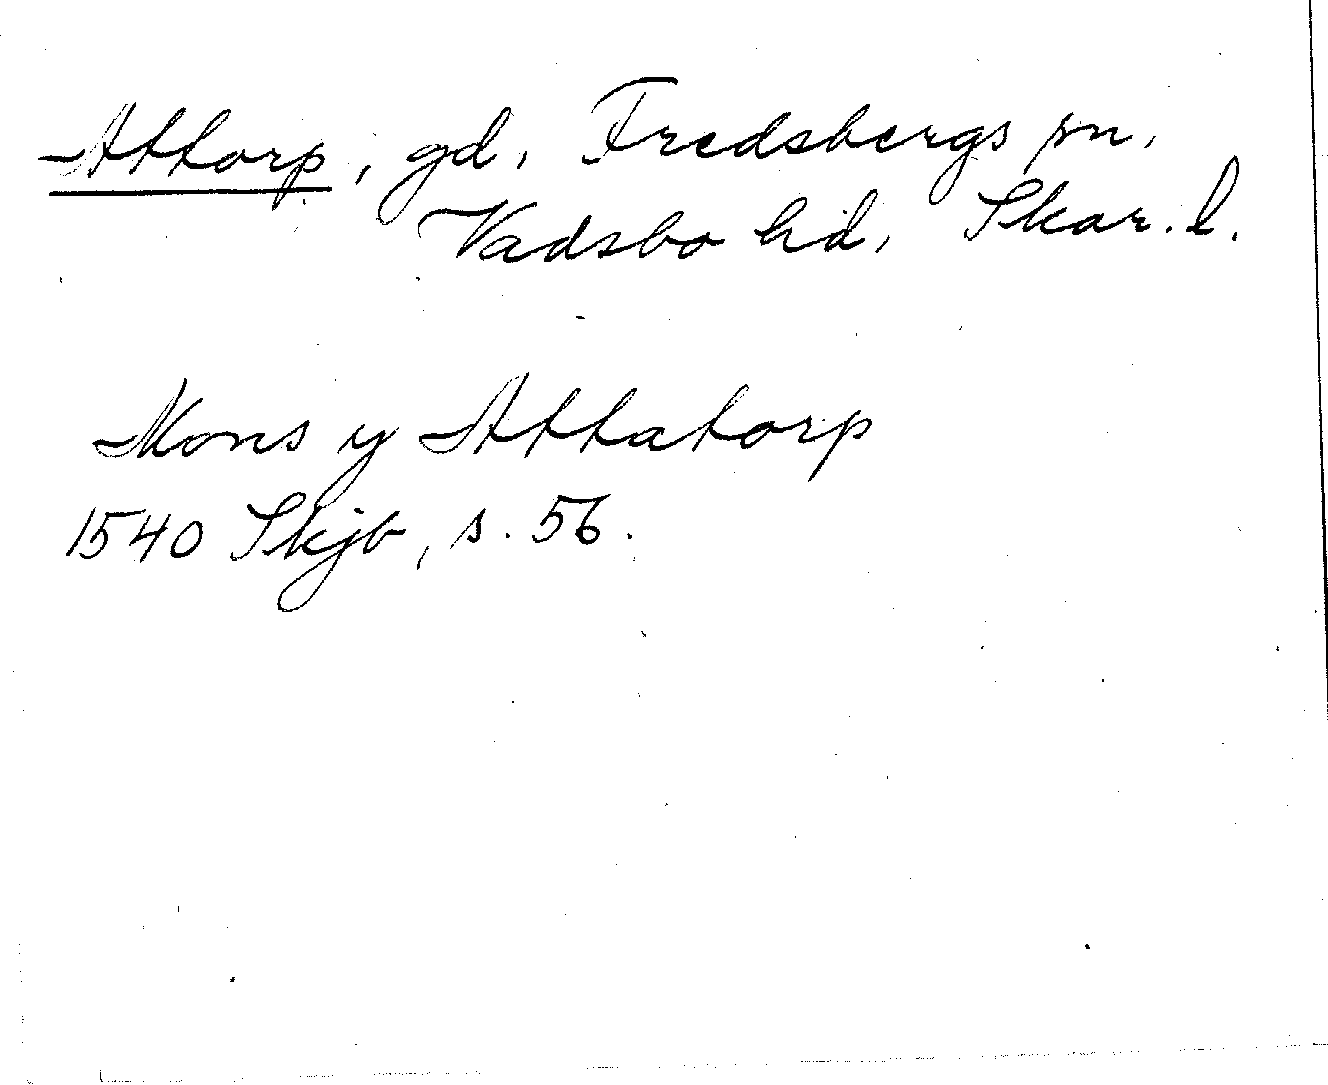 Attorp, gd, Fredsbergs sn,
Vadsbo hd, Skar. l.
Mons y Attatorp
1540 Skjb, s. 56.